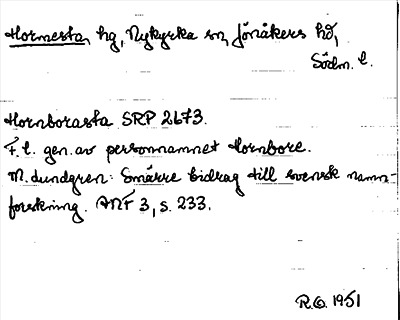 Hormesta, hg, Nykyrka sn, Jönåkers hd,
Södm. l.
Hornborasta SRP 2673.
F. l. gen. av personnamnet Hornbore.
M. Lundgren: Smärre bidrag till svensk namn-
forskning. ANF 3, s. 233.
R.O. 1951